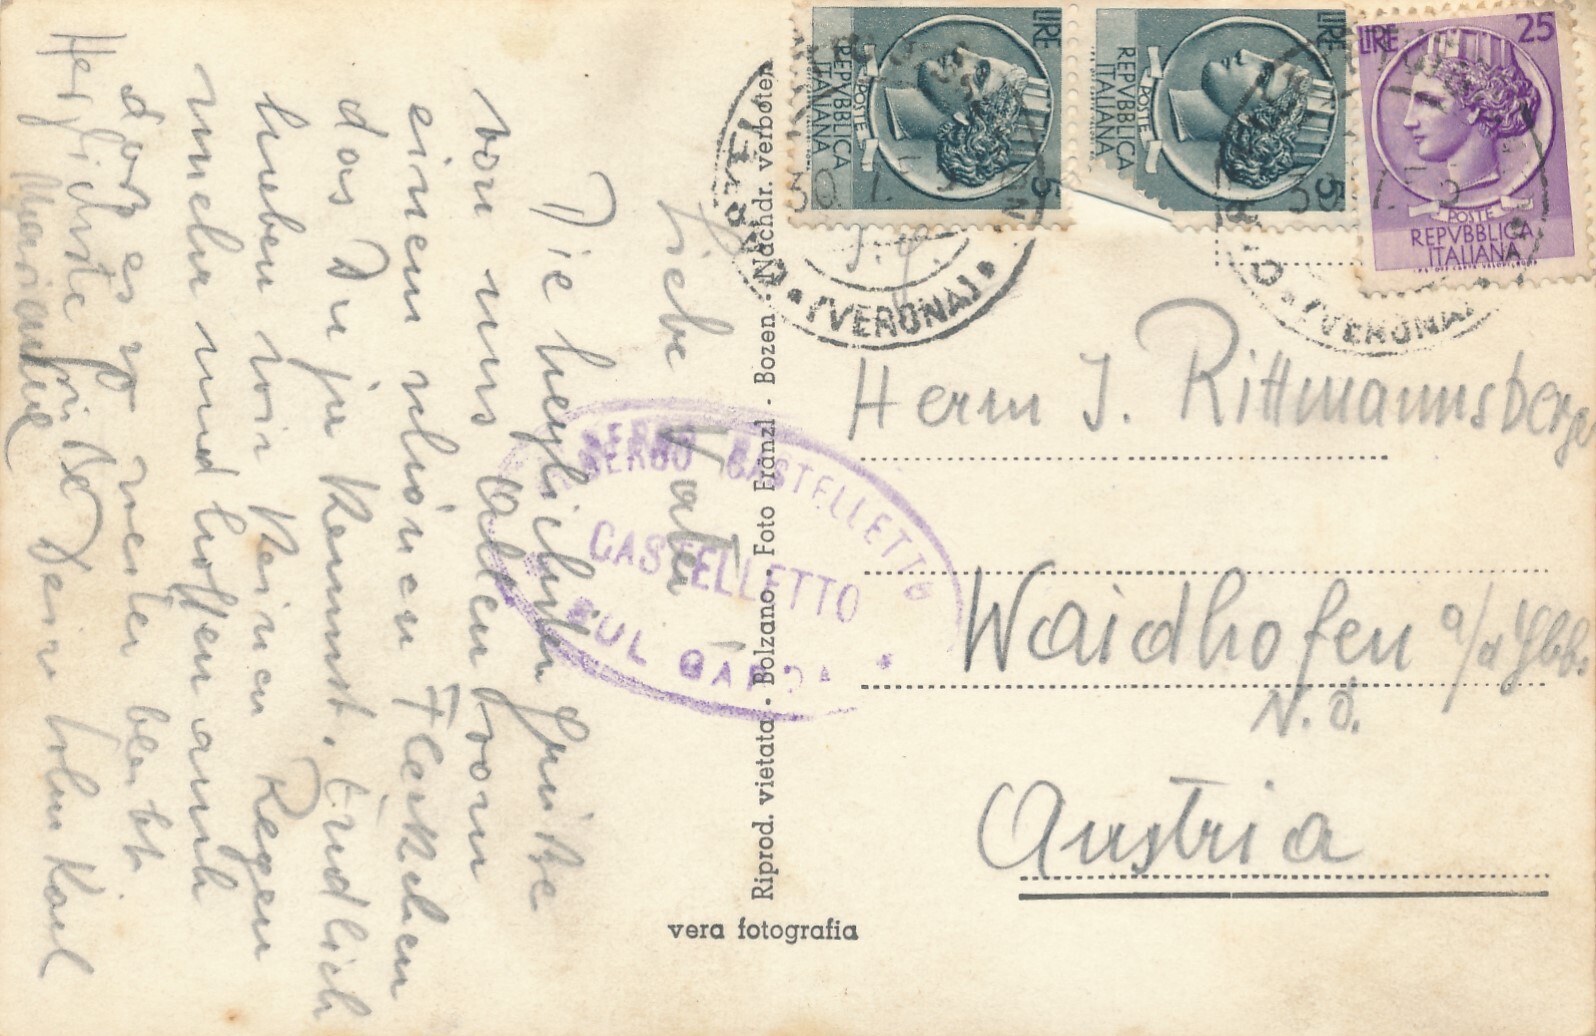 Lieber Vater!
Die herzlichsten Grüße
von uns allen von
einem schönen Fleckchen
das Du ja kennst. Endlich
haben wir keinen Regen
mehr und hoffen auch
daß es so weiter bleibt.
Herzlichste Grüße Dein Sohn Karl
Marianne
LIRE
5
POSTE
REPVBBLICA
ITALIANA
LIRE
5
POSTE
REPVBBLICA
ITALIANA
LIRE 25
POSTE
REPVBBLICA
ITALIANA
(VERONA)
(VERONA)
ALBERGO CASTELLETTO
CASTELLETTO
SUL GARDA
Riprod. vietata - Bolzano - Foto Fränzl - Bozen - Nachdr. verboten
vera fotografia
Herrn J. Rittmannsberger
Waidhofen a/d Ybbs
N.Ö.
Austria